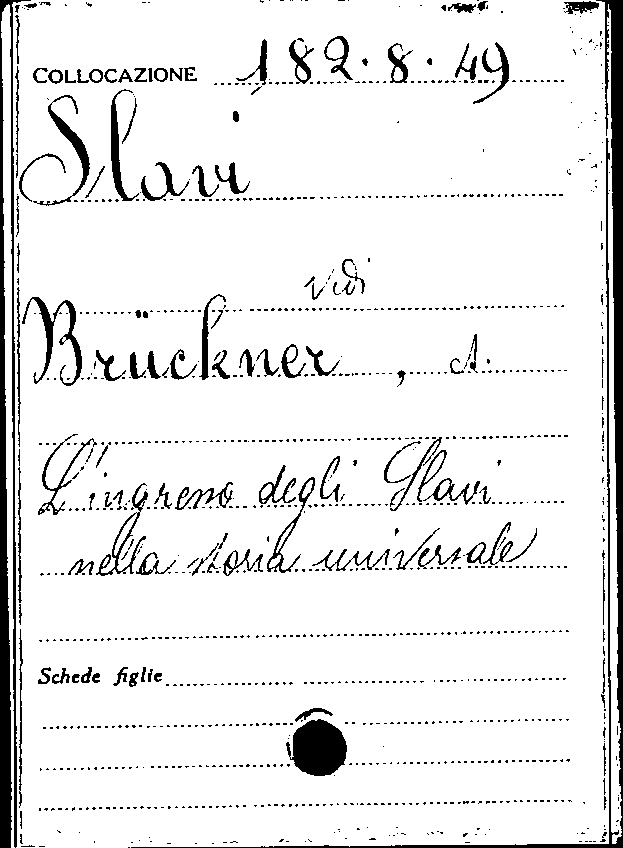 COLLOCAZIONE 182.8.49
Slavi
vidi
Brückner, A.
L'ingresso degli Slavi
nella storia universale
Schede figlie